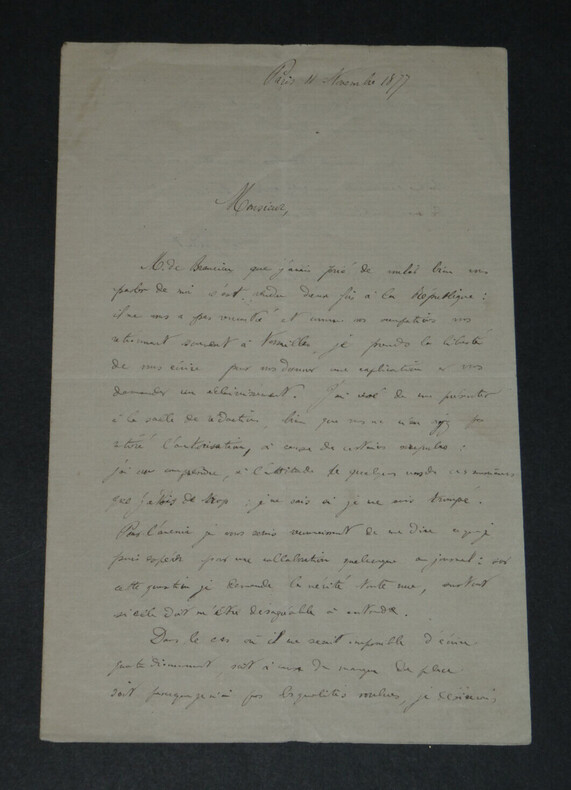 Paris 11 Novembre 1877
Monsieur,
M. de que j'avais prié de vouloir bien vous
parler de moi s'est rendu deux fois à la République :
il ne vous a pas rencontré et comme vos occupations vous
retiennent souvent à Versailles, je prends la liberté
de vous écrire pour vous donner une explication et vous
demander un éclaircissement. J'ai cessé de me présenter
à la salle de rédaction, bien que vous ne m'en ayez pas
retiré l'autorisation, à cause de certains scrupules :
j'ai cru comprendre, à l'attitude de quelques uns de ces messieurs
que j'étais de trop : je ne sais si je me suis trompé.
Pour l'avenir je vous serais reconnaissant de me dire si je
puis espérer pour une collaboration quelconque au journal : sur
cette question je demande la vérité toute nue, surtout
si elle doit m'être désagréable à entendre.
Dans le cas où il me serait impossible d'écrire
quotidiennement, soit à cause du manque de place
soit parce que je n'ai pas les qualités voulues, je